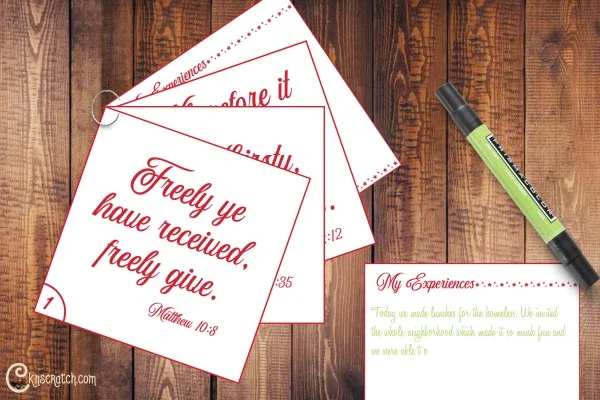 Experiences
before it
:12
:35
Freely ye
have received,
freely give.
Matthew 10:8
1
PRISMACOLOR
My Experiences
Today we made lunches for the homeless. We invited
the whole neighborhood which made it so mush fun and
we were able t o
cknscratch.com